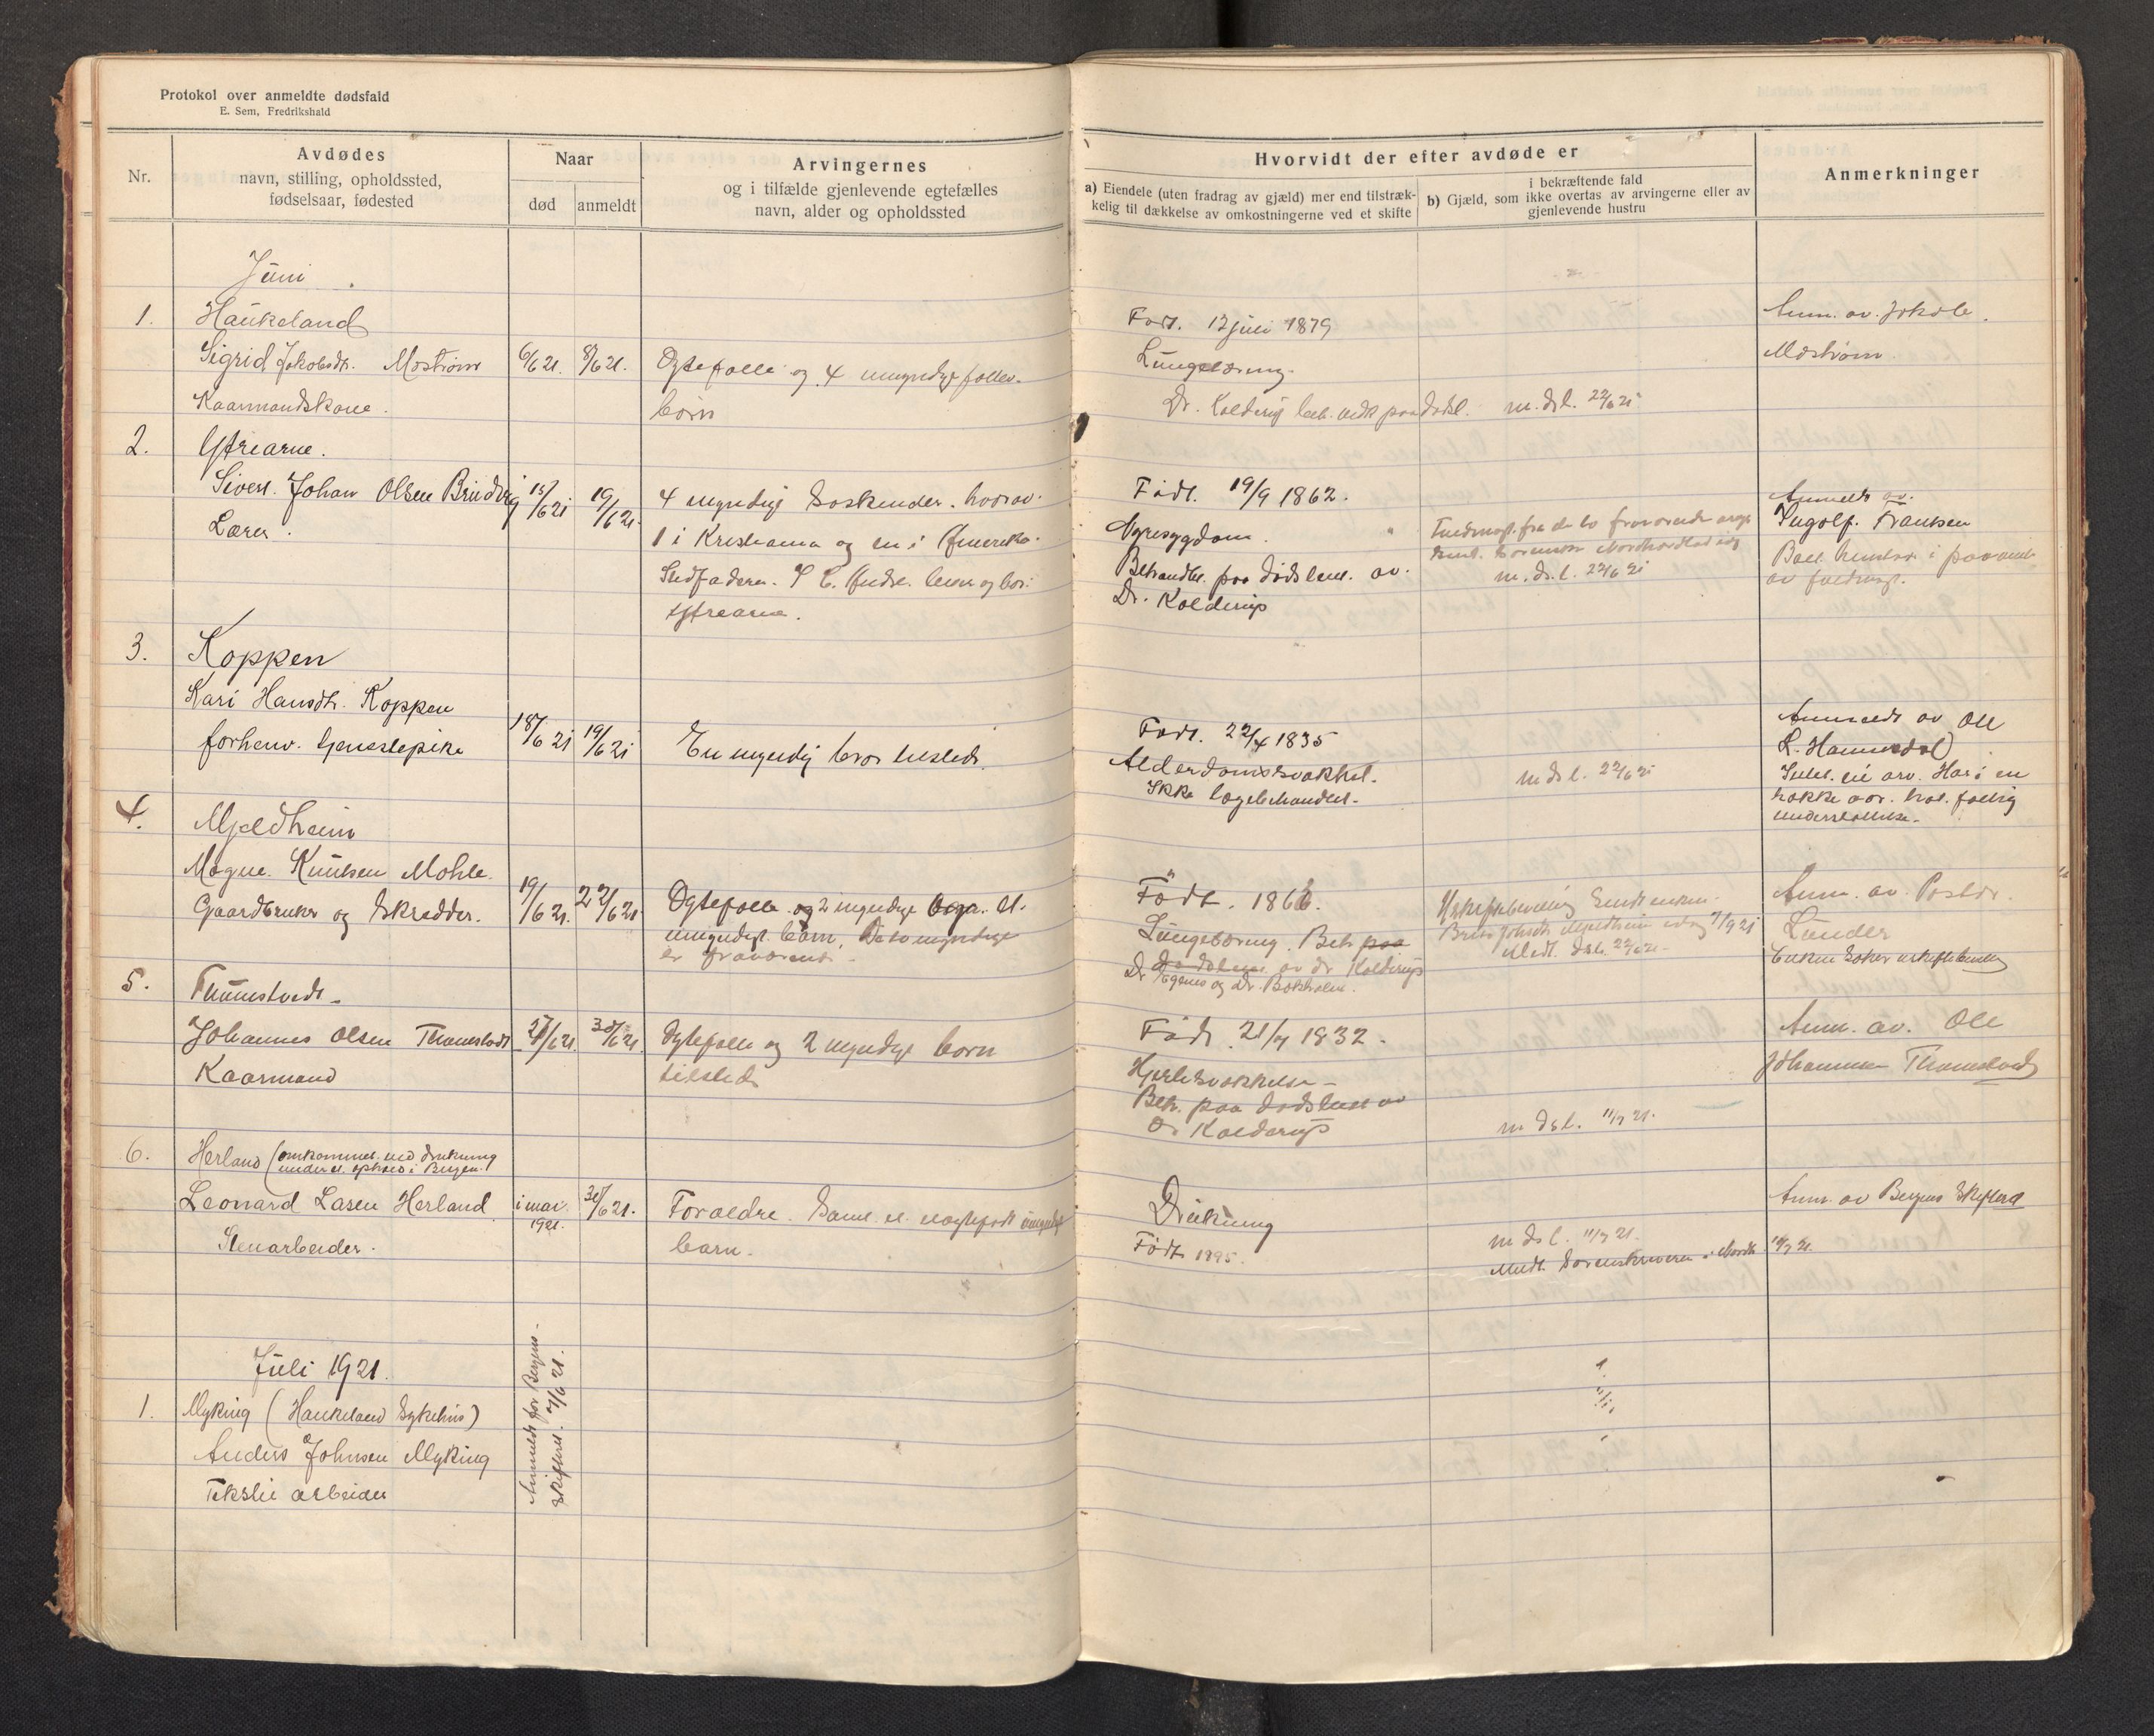 Protokol over anmeldte dødsfald
E. Sem, Fredrikshald
Nr.
Avdødes
navn, stilling, opholdssted,
fødselsaar, fødested
Naar
død
anmeldt
Arvingernes
og i tilfælde gjenlevende egtefælles
navn, alder og opholdssted
Hvorvidt der efter avdøde er
a) Eiendele (uten fradrag av gjæld) mer end tilstræk-
kelig til dækkelse av omkostningerne ved et skifte
i bekræftende fald
b) Gjæld, som ikke overtas av arvingerne eller av
gjenlevende hustru
Anmerkninger
Juni
1. Haukeland
Sigrid Jakobsdt. Mostrøm
Kaarmandskone.
6/6 21. 8/6 21.
Egtefælle og 4 umyndige fælles-
børn
Født. 12 juli 1879
Lungetæring.
Dr. Kolderup beh. avdk paa dødsl. m. dsl. 22/6 21
Anm. av. Jakob.
Mostrøm
2. Ytrearne.
Sivert. Johan Olsen Brudvig
Lærer.
15/6 21 19/6 21.
4 myndige Søskender. hvorav.
1 i Kristiania og en i Amerika.
Stedfaderen. lever og bor.
Ytrearne.
Født. 19/9 1862.
Nyresygdom.
Behandlet. paa dødsleiet. av.
Dr. Kolderup
m. ds. l. 22/6 21
Anmeldt av.
Ingolf. Fransen
3. Koppen
Kari Hansdtr. Koppen
forhenv. tjenestepike
18/6 21 19/6 21
En myndig bror tilstede.
Født. 22/4 1835
Alderdomssvakhet.
Ikke lægebehandlet.
m ds l. 22/6 21
Anmeldt av Ole
L. Hannisdal
Intet. eie arv. Har i en
række aar. hat. fattig
understøttelse.
4. Mjeldheim
Magne. Knutsen Mohle.
Gaardbruker og Skrædder.
19/6 21. 22/6 21.
Egtefælle og 2 myndige børn. et.
umyndigt. barn. De to myndige
er fraværende.
Født. 1866.
Lungetæring. Beh paa
dødsleie av dr Kolderup
Dr Egenes og Dr. Bokholm.
Uskiftebevilling Sendt enken.
Brita Johsdtr Mjeldheim idag 7/9 21
Medt. dsl. 22/6 21.
Anm. av. Postdr.
Lunder
Enken søker uskiftebevilling
5. Thunestvedt.
Johannes Olsen Thunestvedt
Kaarmand
27/6 21. 30/6 21.
Egtefælle og 2 myndige børn
tilstede
Født 21/9 1832.
Hjertesvækkelse
Beh. paa dødsleiet av
Dr Kolderup
m dsl. 11/7 21.
Anm. av. Ole
Johannesen Thunestvedt
6. Herland (omkommet ved drukning
under et ophold i Bergen.)
Leonard Lasen Herland
Stenarbeider.
i mai
1921.
30/6 21.
Forældre. Samt. et. uegtefødt umyndigt
barn.
Drukning
Født 1895.
m ds l. 11/7 21.
Medt. Sorenskriveren i Nordh 14/7 21.
Anm. av Bergens Skifteret
Juli 1921.
1. Myking (Haukeland Sykehus)
Anders Johnsen Myking
Tekstil arbeider
Anmeldt for Bergens
Skifteret.